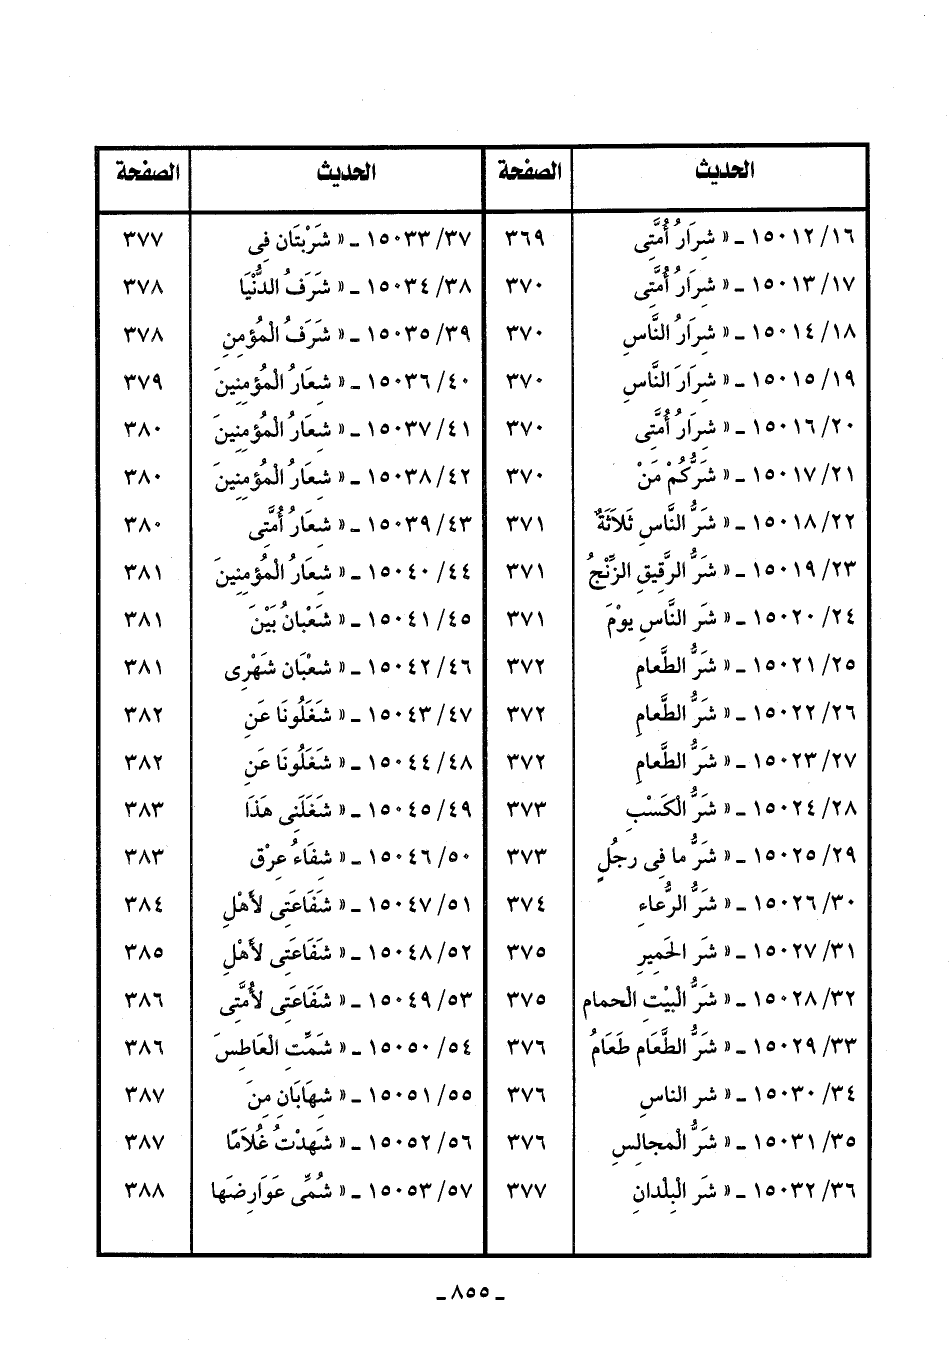 الحديث الصفحة الحديث الصفحة
١٦/ ١٥٠١٢ ـ « شِرَارُ أُمَّتِى ٣٦٩ ٣٧/ ١٥٠٣٣ ـ « شَرْبتَان فِى ٣٧٧
١٧/ ١٥٠١٣ ـ « شِرَارُ أُمَّتِى ٣٧٠ ٣٨/ ١٥٠٣٤ ـ « شَرَفُ الدُّنْيَا ٣٧٨
١٨/ ١٥٠١٤ ـ « شِرَارُ النَّاسِ ٣٧٠ ٣٩/ ١٥٠٣٥ ـ « شَرَفُ الْمُؤمِنِ ٣٧٨
١٩/ ١٥٠١٥ ـ « شِرَارَ النَّاسِ ٣٧٠ ٤٠/ ١٥٠٣٦ ـ « شِعَارُ الْمُؤْمِنِينَ ٣٧٩
٢٠/ ١٥٠١٦ ـ « شِرَارُ أُمَّتِى ٣٧٠ ٤١/ ١٥٠٣٧ ـ « شِعَارُ الْمُؤْمِنِينَ ٣٨٠
٢١/ ١٥٠١٧ ـ « شَرُّكُمْ مَنْ ٣٧٠ ٤٢/ ١٥٠٣٨ ـ « شِعَارُ الْمُؤمِنِينَ ٣٨٠
٢٢/ ١٥٠١٨ ـ « شَرُّ النَّاسِ ثَلاَثَةٌ ٣٧١ ٤٣/ ١٥٠٣٩ ـ « شِعَارُ أُمَّتِى ٣٨٠
٢٣/ ١٥٠١٩ ـ « شَرُّ الرَّقِيقِ الزِّنْجُ ٣٧١ ٤٤/ ١٥٠٤٠ ـ « شِعَارُ الْمُؤْمِنِينَ ٣٨١
٢٤/ ١٥٠٢٠ ـ « شَر النَّاسِ يوْمَ ٣٧١ ٤٥/ ١٥٠٤١ ـ « شَعْبانُ بَيْنَ ٣٨١
٢٥/ ١٥٠٢١ ـ « شَرُّ الطَّعامِ ٣٧٢ ٤٦/ ١٥٠٤٢ ـ « شعْبَان شَهْرِى ٣٨١
٢٦/ ١٥٠٢٢ ـ « شَرُّ الطَّعامِ ٣٧٢ ٤٧/ ١٥٠٤٣ ـ « شَغَلُونَا عَنِ ٣٨٢
٢٧/ ١٥٠٢٣ ـ « شَرُّ الطَّعامِ ٣٧٢ ٤٨/ ١٥٠٤٤ ـ « شَغَلُونَا عَنِ ٣٨٢
٢٨/ ١٥٠٢٤ ـ « شَرُّ الْكَسْبِ ٣٧٣ ٤٩/ ١٥٠٤٥ ـ « شَغَلَنِى هَذَا ٣٨٣
٢٩/ ١٥٠٢٥ ـ « شَرُّ ما فِى رجُلٍ ٣٧٣ ٥٠/ ١٥٠٤٦ ـ « شِفَاءُ عِرْق ٣٨٣
٣٠/ ١٥٠٢٦ ـ « شَرُّ الرُّعاءِ ٣٧٤ ٥١/ ١٥٠٤٧ ـ « شَفَاعَتِى لأَهْلِ ٣٨٤
٣١/ ١٥٠٢٧ ـ « شَر الحَمِيرِ ٣٧٥ ٥٢/ ١٥٠٤٨ ـ « شَفَاعَتِى لأَهْلِ ٣٨٥
٣٢/ ١٥٠٢٨ ـ « شَرُّ الْبيْتِ الْحمام ٣٧٥ ٥٣/ ١٥٠٤٩ ـ « شَفَاعَتِى لأُمَّتِى ٣٨٦
٣٣/ ١٥٠٢٩ ـ « شَرُّ الطَّعَام طَعَامُ ٣٧٦ ٥٤/ ١٥٠٥٠ ـ « شَمِّتِ الْعَاطِسَ ٣٨٦
٣٤/ ١٥٠٣٠ ـ « شر الناسِ ٣٧٦ ٥٥/ ١٥٠٥١ ـ « شِهَابَانِ مِنَ ٣٨٧
٣٥/ ١٥٠٣١ ـ « شَرُّ الْمجالِسِ ٣٧٦ ٥٦/ ١٥٠٥٢ ـ « شَهِدْتُ غُلاَمًا ٣٨٧
٣٦/ ١٥٠٣٢ ـ « شَر الْبِلْدانِ ٣٧٧ ٥٧/ ١٥٠٥٣ ـ « شُمِّى عَوَارِضَها ٣٨٨
ـ ٨٥٥ ـ